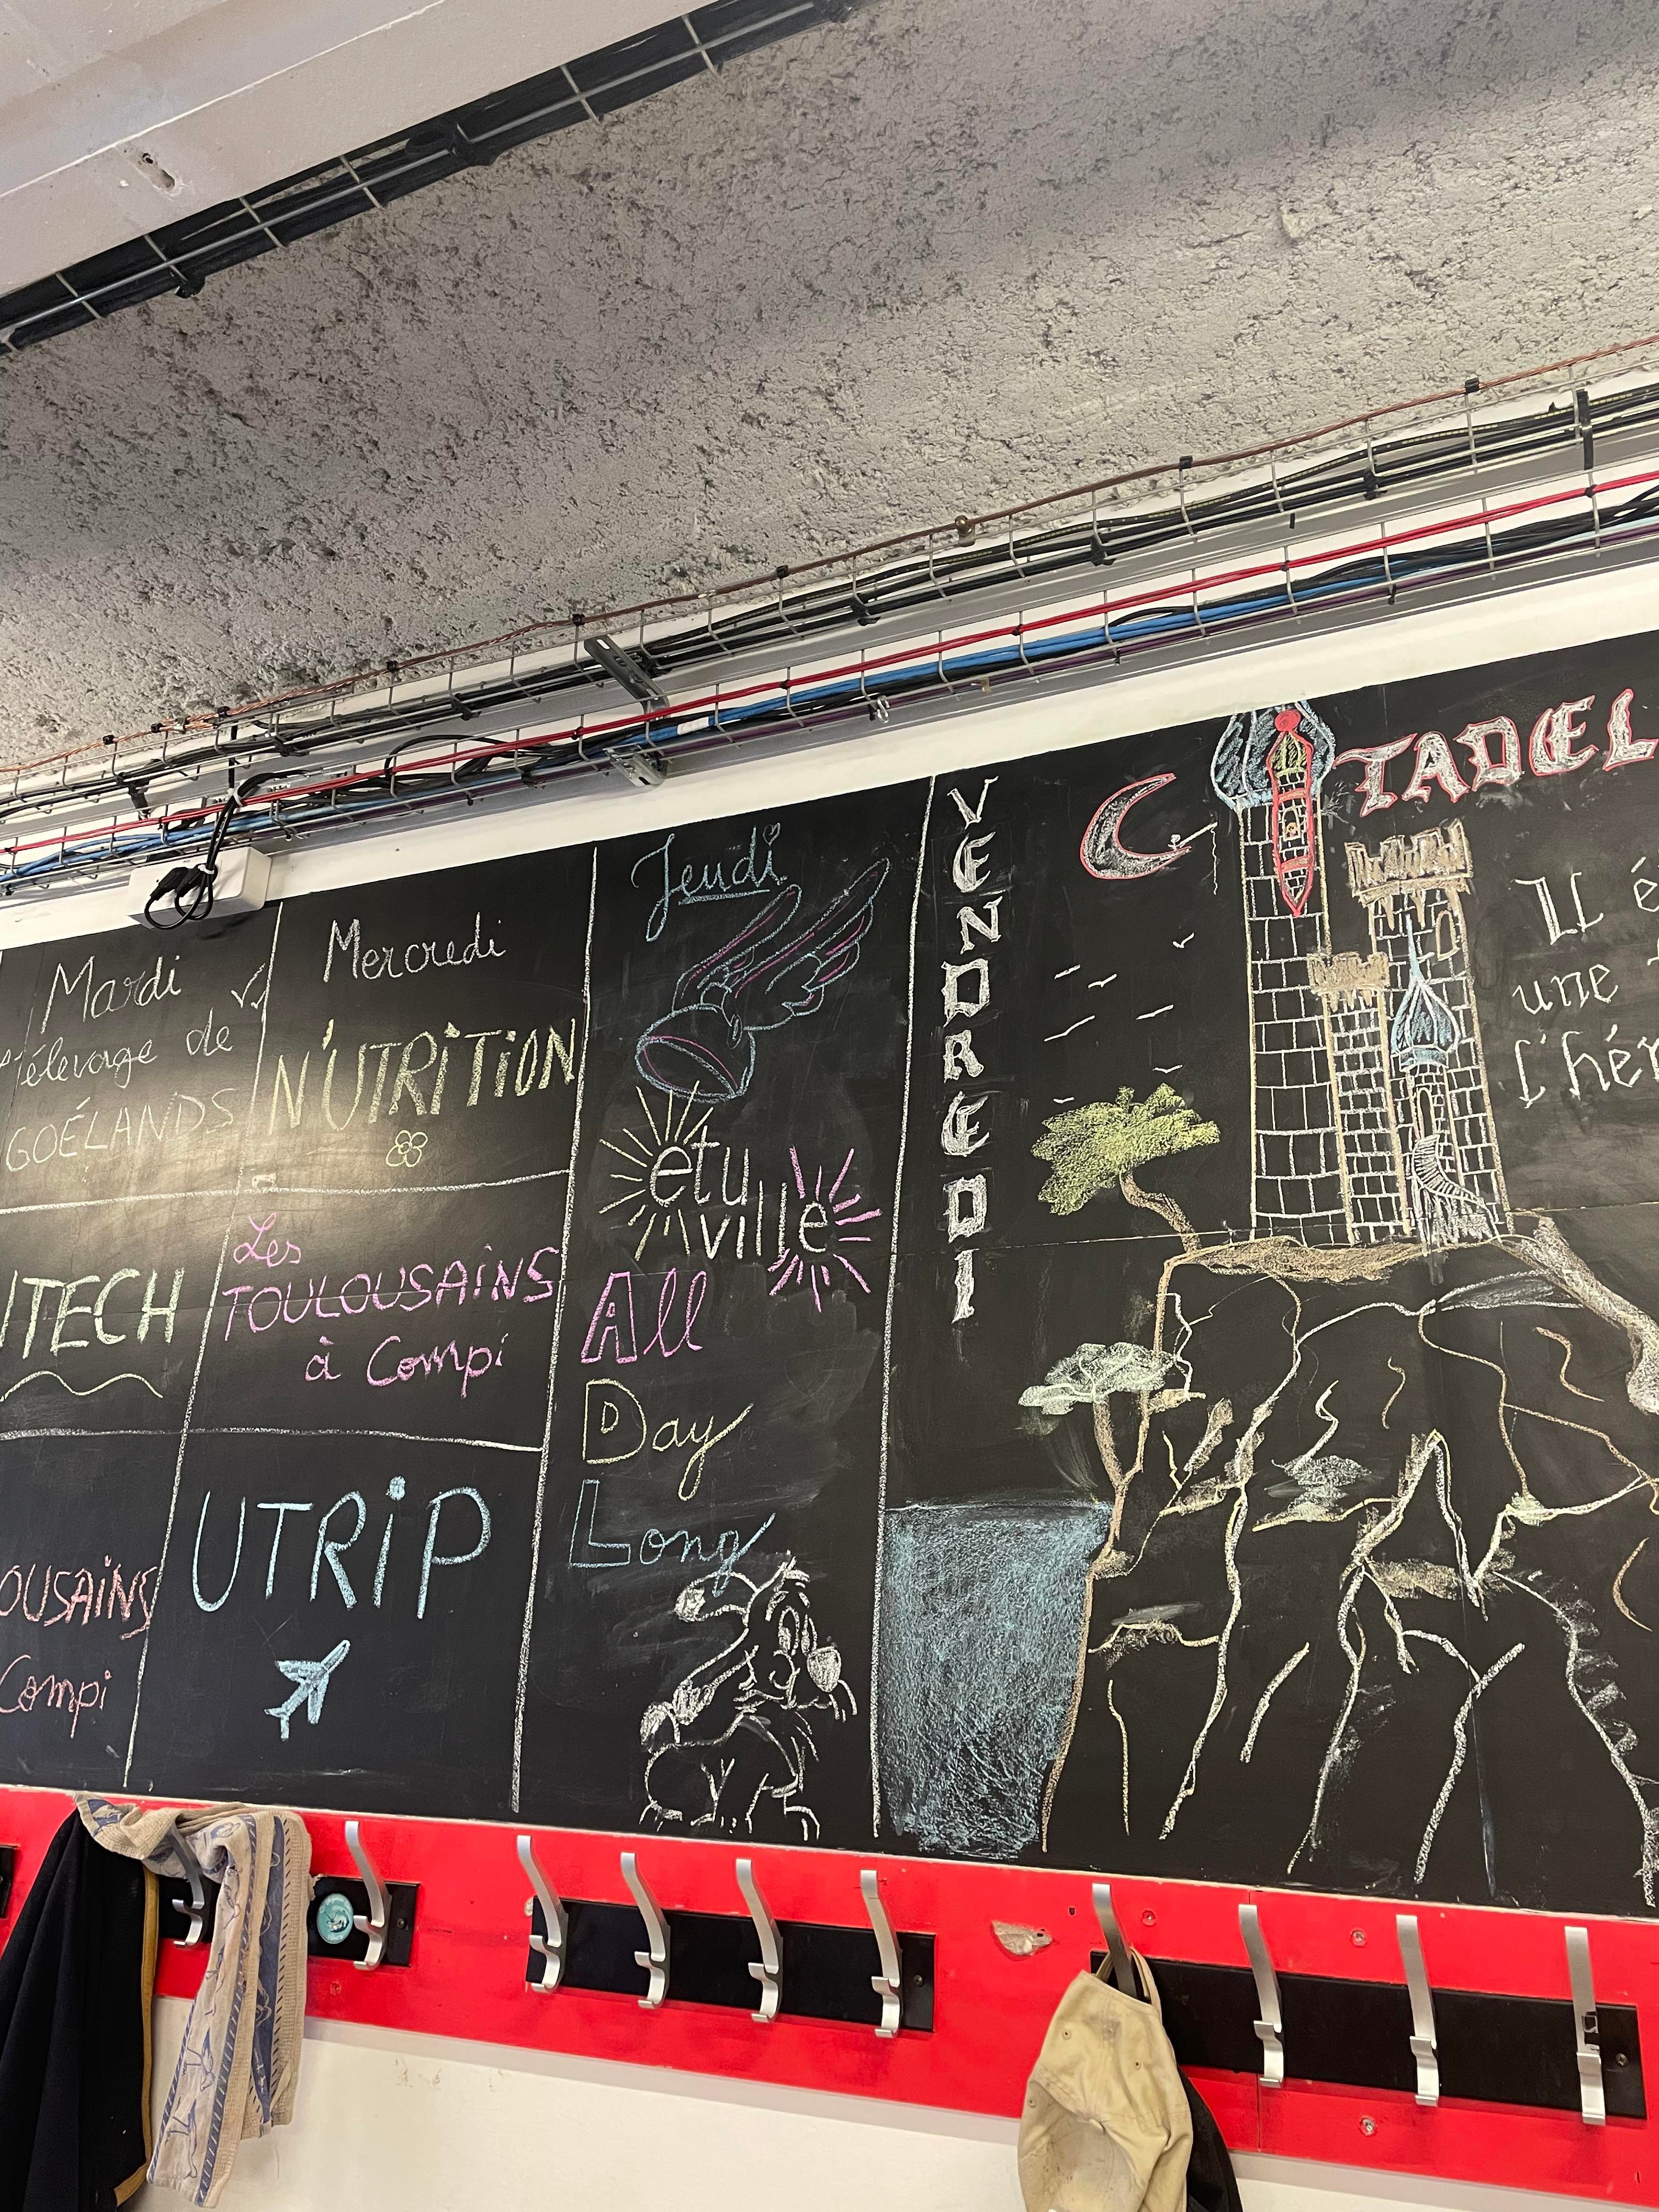 Mardi
élevage de
GOÉLANDS
ITECH
OUSAiNS
Compi
Mercredi
N'UTRiTiON
Les
TOULOUSAiNS
à Compi
UTRiP
Jeudi
etu
ville
All
Day
Long
VENDREDI
CiTADEL
IL é
une
l'hér